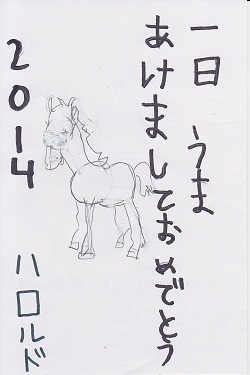 一日 うま
あけましておめでとう
2014
ハロルド